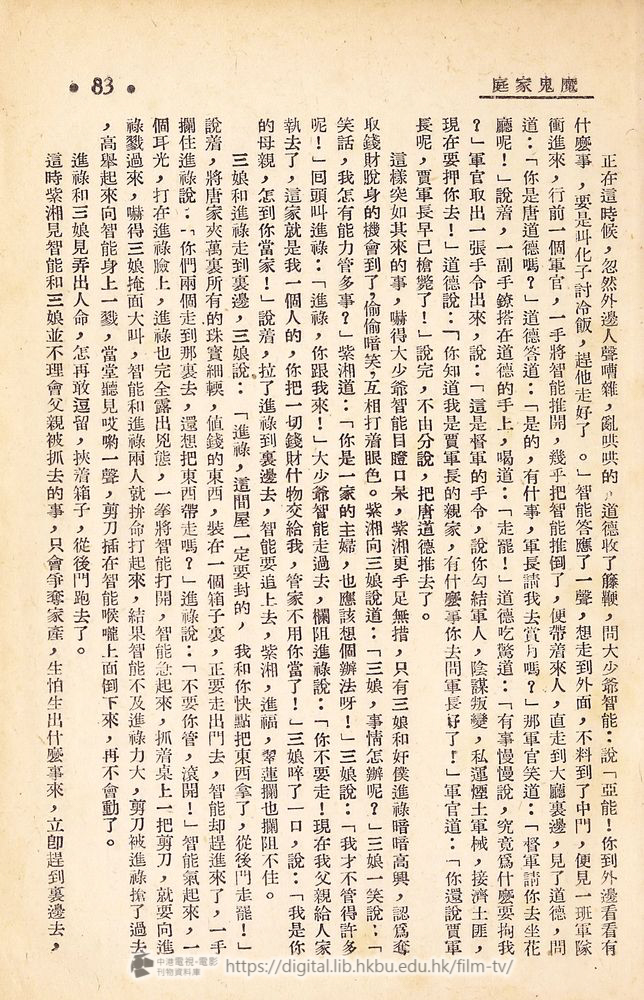 魔鬼家庭
● 83 ●
正在這時候，忽然外邊人聲嘈雜，亂哄哄的，道德收了籐鞭，問大少爺智能：說「亞能！你到外邊看看有
什麼事，要是叫化子討冷飯，趕他走好了。」智能答應了一聲，想走到外面，不料到了中門，便見一班軍隊
衝進來，行前一個軍官，一手將智能推開，幾乎把智能推倒了，便帶着來人，直走到大廳裏邊，見了道德，問
道：「你是唐道德嗎？」道德答道：「是的，有什事，軍長請我去賞月嗎？」那軍官笑道：「督軍請你去坐花
廳呢！」說着，一副手鐐搭在道德的手上，喝道：「走罷！」道德吃驚道：「有事慢慢說，究竟爲什麼要拘我
？」軍官取出一張手令出來，說：「這是督軍的手令，說你勾結軍人，陰謀叛變，私運煙土軍械，接濟土匪，
現在要押你去！」道德說：「你知道我是賈軍長的親家，有什麼事你去問軍長好了！」軍官道：「你還說賈軍
長呢，賈軍長早已槍斃了！」說完，不由分說，把唐道德推去了。
這樣突如其來的事，嚇得大少爺智能目瞪口呆，紫湘更手足無措，只有三娘和奸僕進祿暗暗高興，認爲奪
取錢財脫身的機會到了，偷偷暗笑，互相打着眼色。紫湘向三娘說道：「三娘，事情怎辦呢？」三娘一笑說：「
笑話，我怎有能力管多事？」紫湘道：「你是一家的主婦，也應該想個辦法呀！」三娘說：「我才不管得許多
呢！」囘頭叫進祿：「進祿，你跟我來！」大少爺智能走過去，欄阻進祿說：「你不要走！現在我父親給人家
執去了，這家就是我一個人的，你把一切錢財什物交給我，管家不用你當了！」三娘啐了一口，說：「我是你
的母親，怎到你當家！」說着，拉了進祿到裏邊去，智能要追上去，紫湘，進福，翠蓮攔也攔阻不住。
三娘和進祿走到裏邊，三娘說：「進祿，這間屋一定要封的，我和你快點把東西拿了，從後門走罷！」
說着，將唐家夾萬裏所有的珠寶細輭，値錢的東西，裝在一個箱子裏，正要走出門去，智能却趕進來了，一手
攔住進祿說：「你們兩個走到那裏去，還想把東西帶走嗎？」進祿說：「不要你管，滾開！」智能氣起來，一
個耳光，打在進祿臉上，進祿也完全露出兇態，一拳將智能打開，智能急起來，抓着桌上一把剪刀，就要向進
祿戮過來，嚇得三娘掩面大叫，智能和進祿兩人就拚命打起來，結果智能不及進祿力大，剪刀被進祿搶了過去
，高舉起來向智能身上一戮，當堂聽見哎喲一聲，剪刀插在智能喉嚨上面倒下來，再不會動了。
進祿和三娘見弄出人命，怎再敢逗留，挾着箱子，從後門跑去了。
這時紫湘見智能和三娘並不理會父親被抓去的事，只會爭奪家產，生怕生出什麼事來，立卽趕到裏邊去，
中港電視·電影
刊物資料庫
https://digital.lib.hkbu.edu.hk/film-tv/